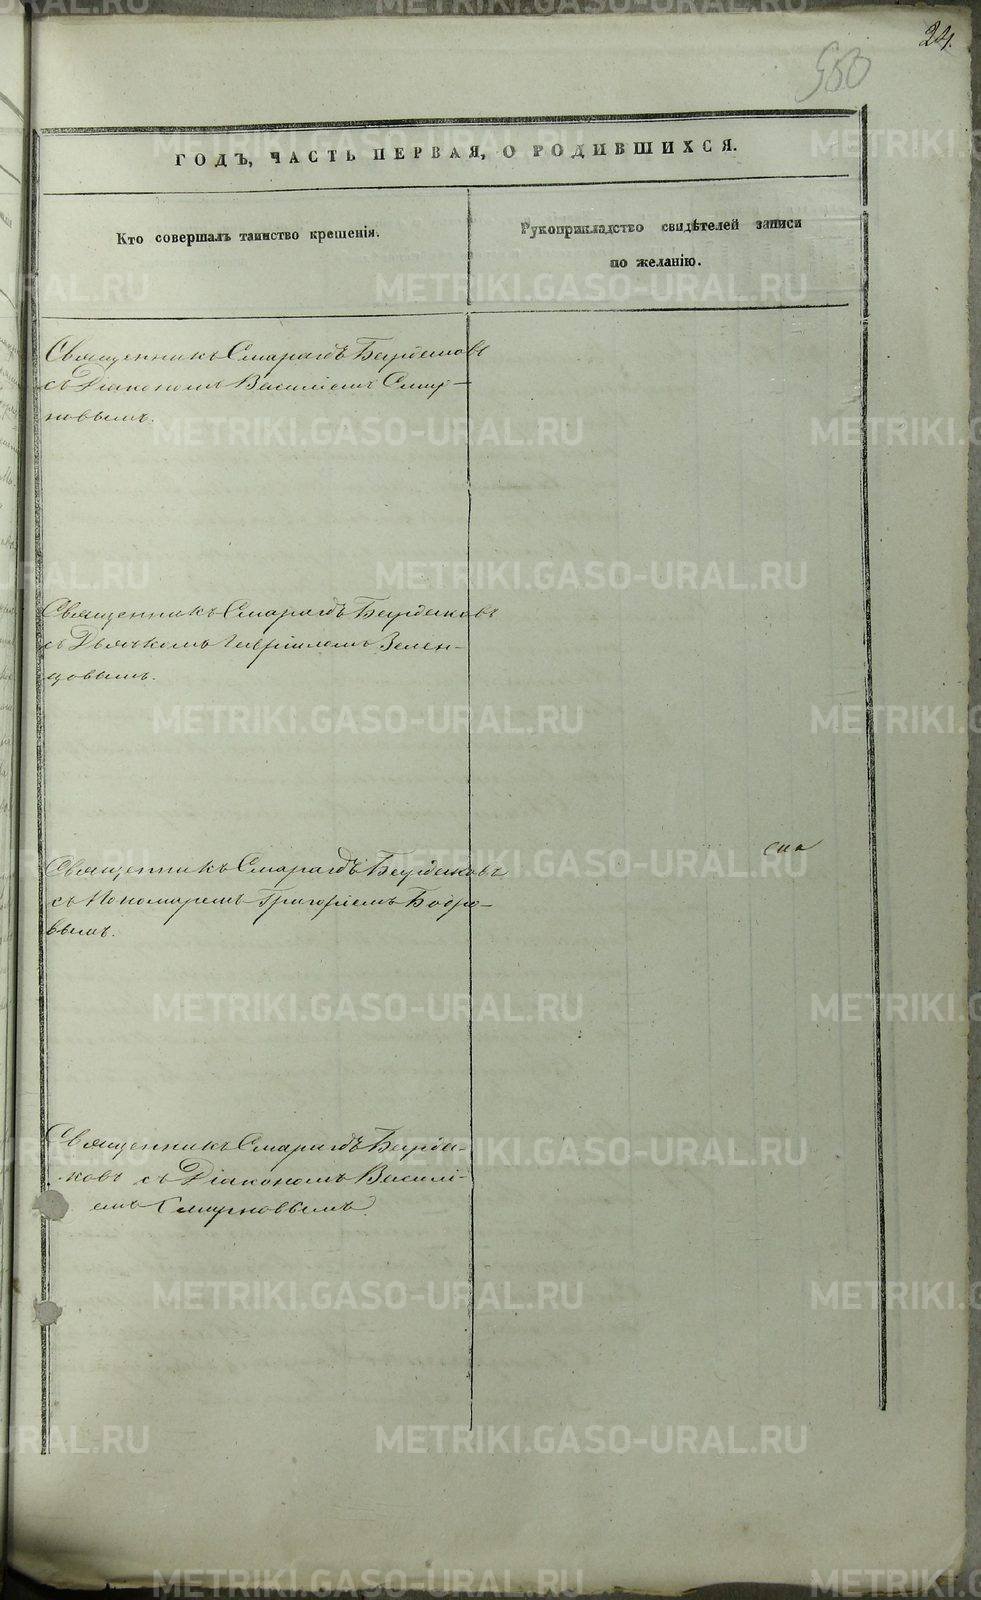 24.
550
ГОДЪ, ЧАСТЬ ПЕРВАЯ, О РОДИВШИХСЯ.
Кто совершалъ таинство крещенія.
Рукоприкладство свидѣтелей записи
по желанію.
Священникъ Смарагдъ Бурдаковъ
съ Діакономъ Василіемъ Смир-
новымъ.
Священникъ Смарагдъ Бурдаковъ
съ Дьячкомъ Гавріиломъ Зелен-
цовымъ.
Священникъ Смарагдъ Бурдаковъ
съ Пономаремъ Григоріемъ Бобро-
вымъ.
Священникъ Смарагдъ Бурда-
ковъ съ Діакономъ Василі-
емъ Смирновымъ.
METRIKI.GASO-URAL.RU